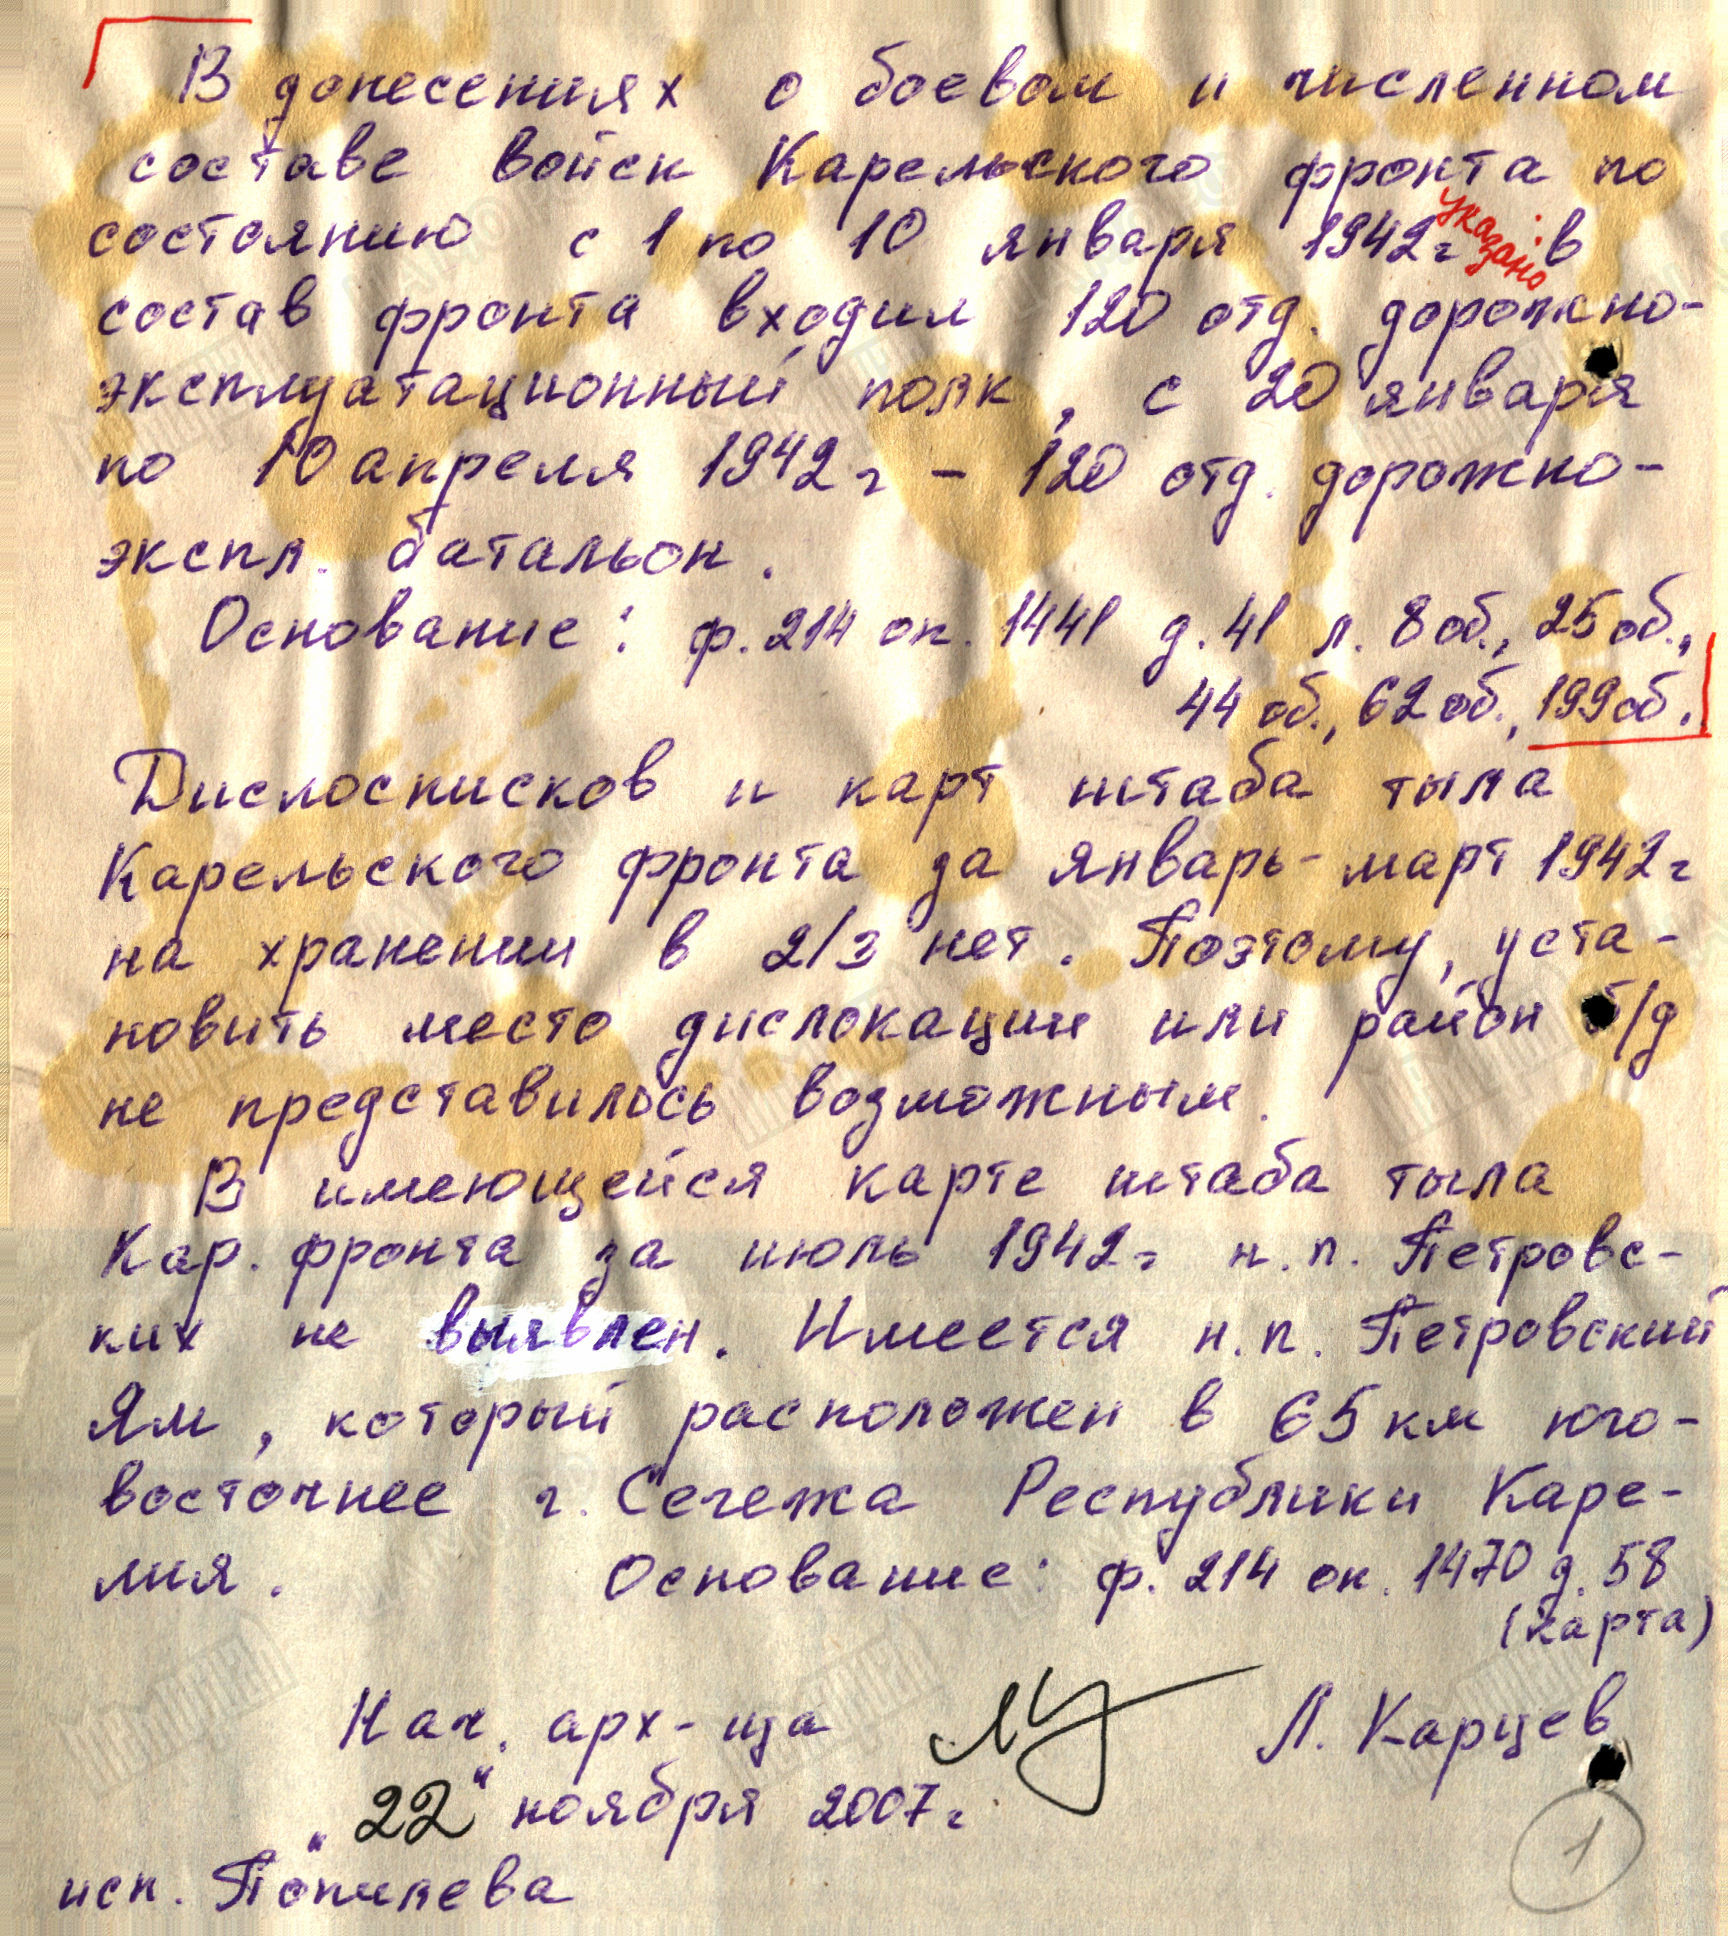 В донесениях о боевом и численном
составе войск Карельского фронта по
состоянию с 1 по 10 января 1942г указано: в
состав фронта входил 120 отд. дорожно-
эксплуатационный полк, с 20 января
по 10 апреля 1942г – 120 отд. дорожно-
экспл. батальон.
Основание: ф.214 оп. 1441 д. 41 л. 8об., 25об.,
44об., 62об., 199об.
Дислосписков и карт штаба тыла
Карельского фронта за январь-март 1942г
на хранении в 2/3 нет. Поэтому, уста-
новить место дислокации или район б/д
не представилось возможным.
В имеющейся карте штаба тыла
Кар. фронта за июль 1942г н.п. Петровс-
ких не выявлен. Имеется н.п. Петровский
Ям, который расположен в 65км юго-
восточнее г. Сегежа Республики Каре-
лия. Основание: ф. 214 оп. 1470 д. 58
(карта)
Нач. арх-ща Л. Карцев
„22" ноября 2007г
исп.
1